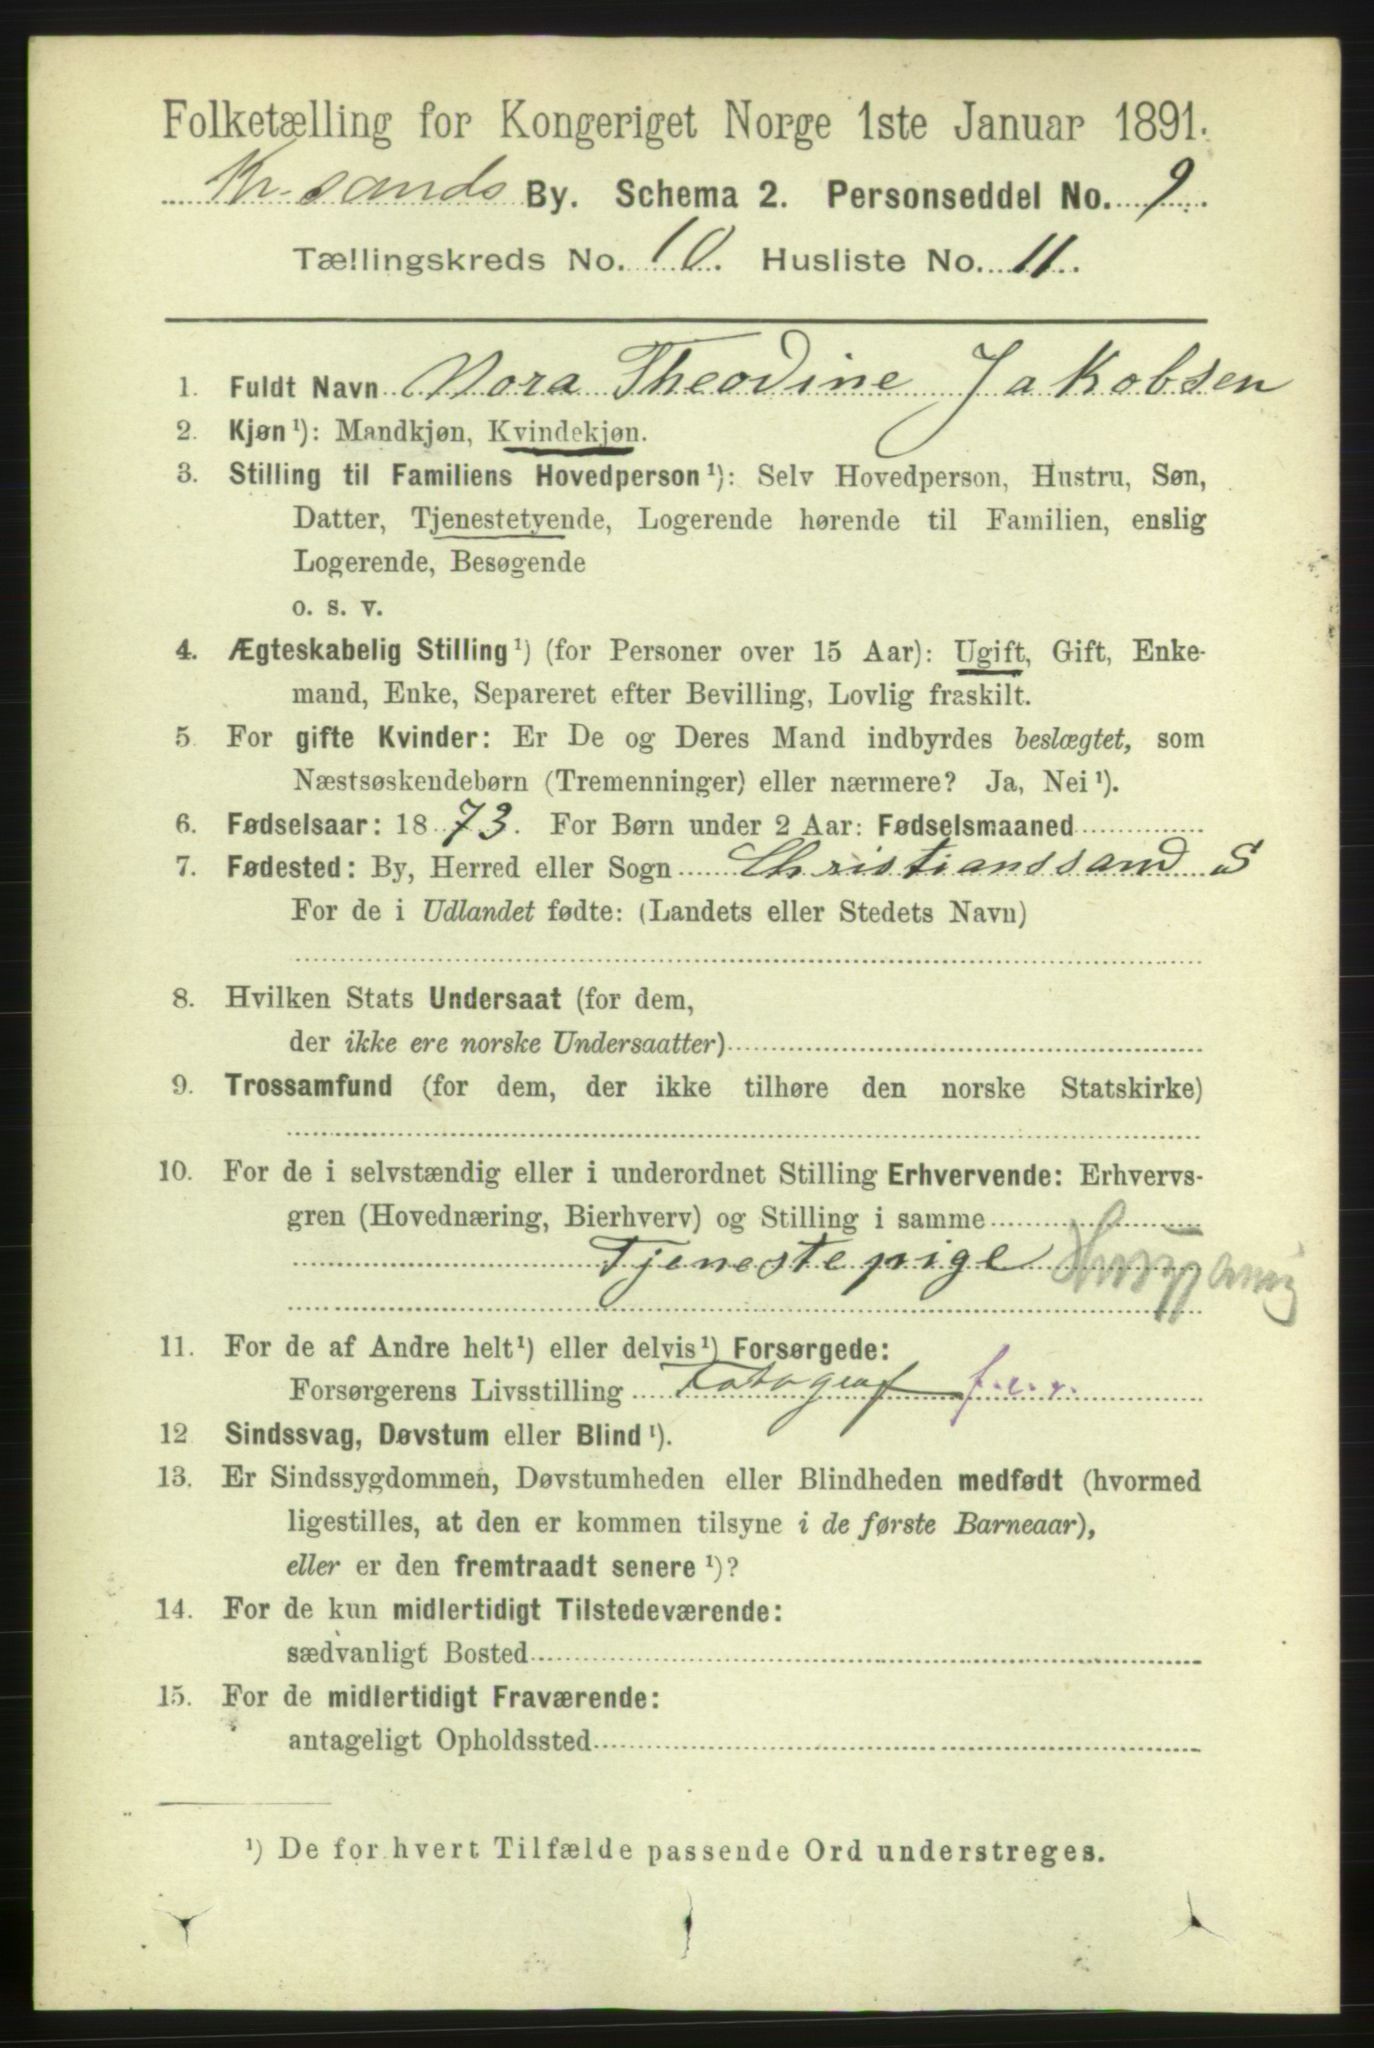 Folketælling for Kongeriget Norge 1ste Januar 1891.
Kr.sands By. Schema 2. Personseddel No. 9.
Tællingskreds No. 10. Husliste No. 11.
1. Fuldt Navn Nora Theodine Jakobsen
2. Kjøn¹): Mandkjøn, Kvindekjøn.
3. Stilling til Familiens Hovedperson¹): Selv Hovedperson, Hustru, Søn,
Datter, Tjenestetyende, Logerende hørende til Familien, enslig
Logerende, Besøgende
o. s. v.
4. Ægteskabelig Stilling¹) (for Personer over 15 Aar): Ugift, Gift, Enke-
mand, Enke, Separeret efter Bevilling, Lovlig fraskilt.
5 For gifte Kvinder: Er De og Deres Mand indbyrdes beslægtet, som
Næstsøskendebørn (Tremenninger) eller nærmere? Ja, Nei¹).
6. Fødselsaar: 1873. For Børn under 2 Aar: Fødselsmaaned
7. Fødested: By, Herred eller Sogn Christianssand S
For de i Udlandet fødte: (Landets eller Stedets Navn)
8. Hvilken Stats Undersaat (for dem,
der ikke ere norske Undersaatter)
9. Trossamfund (for dem, der ikke tilhøre den norske Statskirke)
10. For de i selvstændig eller i underordnet Stilling Erhvervende: Erhvervs-
gren (Hovednæring, Bierhverv) og Stilling i samme
Tjenestepige
11. For de af Andre helt¹) eller delvis¹) Forsørgede:
Forsørgerens Livsstilling Fotograf f.e.v.
12 Sindssvag, Døvstum eller Blind¹).
13. Er Sindssygdommen, Døvstumheden eller Blindheden medfødt (hvormed
ligestilles, at den er kommen tilsyne i de første Barneaar),
eller er den fremtraadt senere¹)?
14. For de kun midlertidigt Tilstedeværende:
sædvanligt Bosted
15. For de midlertidigt Fraværende:
antageligt Opholdssted
¹) De for hvert Tilfælde passende Ord understreges.